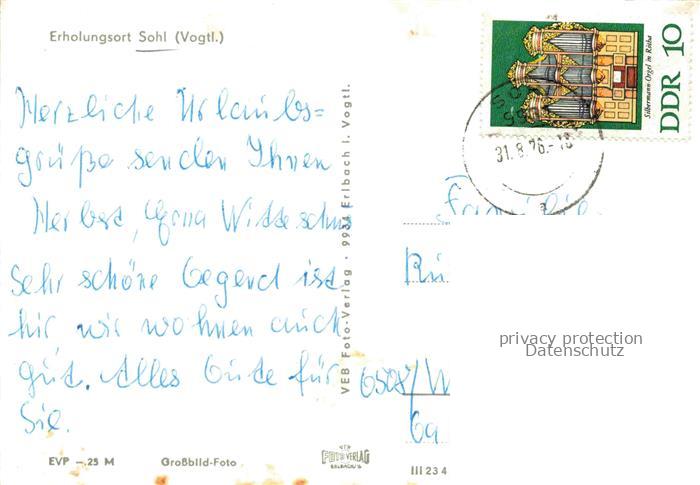 Erholungsort Sohl (Vogtl.)
Herzliche Urlaubs=
grüße senden Ihnen
Herbert,
Sehr schöne Gegend ist
hir wir wohnen auch
gut. Alles Gute für
Sie.
EVP -.25 M Großbild-Foto
FOTO VERLAG
VEB Foto-Verlag · 9934 Erlbach i. Vogtl.
Silbermann-Orgel in Rötha
DDR 10
31.8.76.-18
Familie
Rü
6508/W
6a
III 23 4
privacy protection
Datenschutz